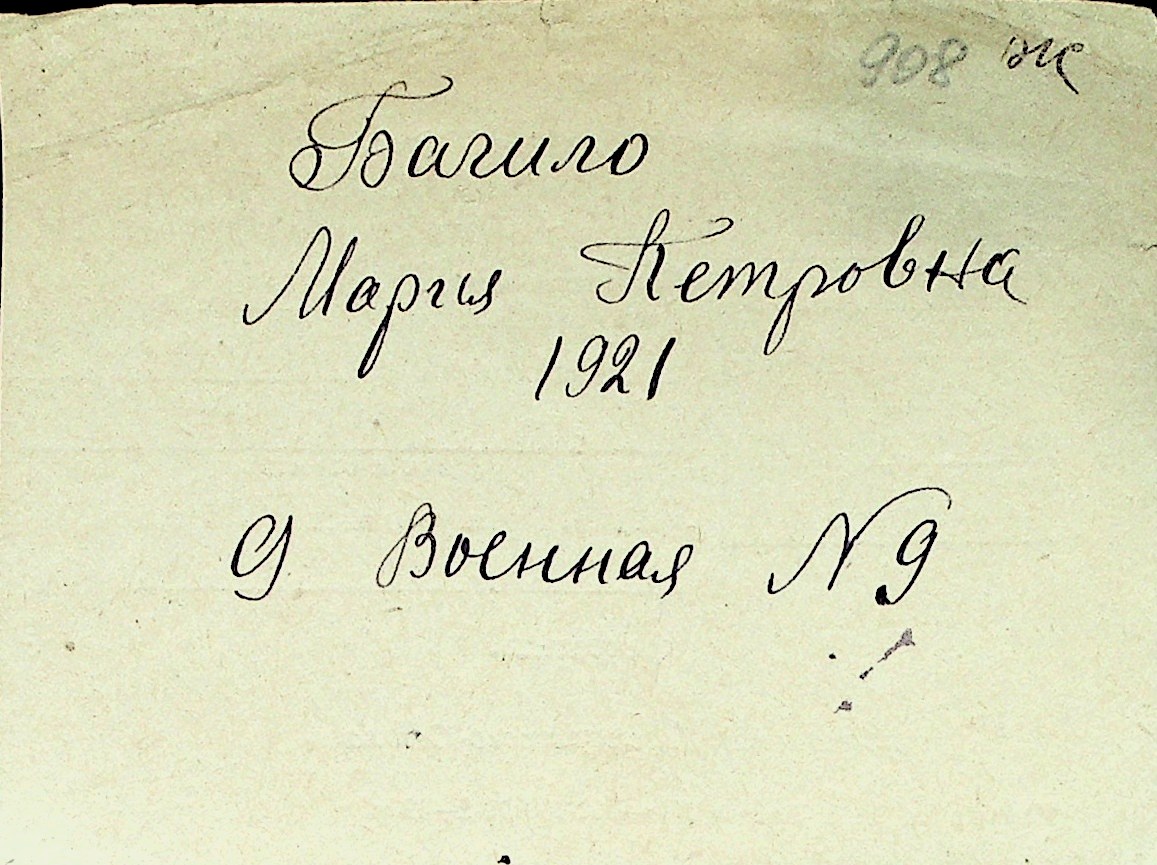 908 ж
Багило
Мария Петровна
1921
9 Военная N 9